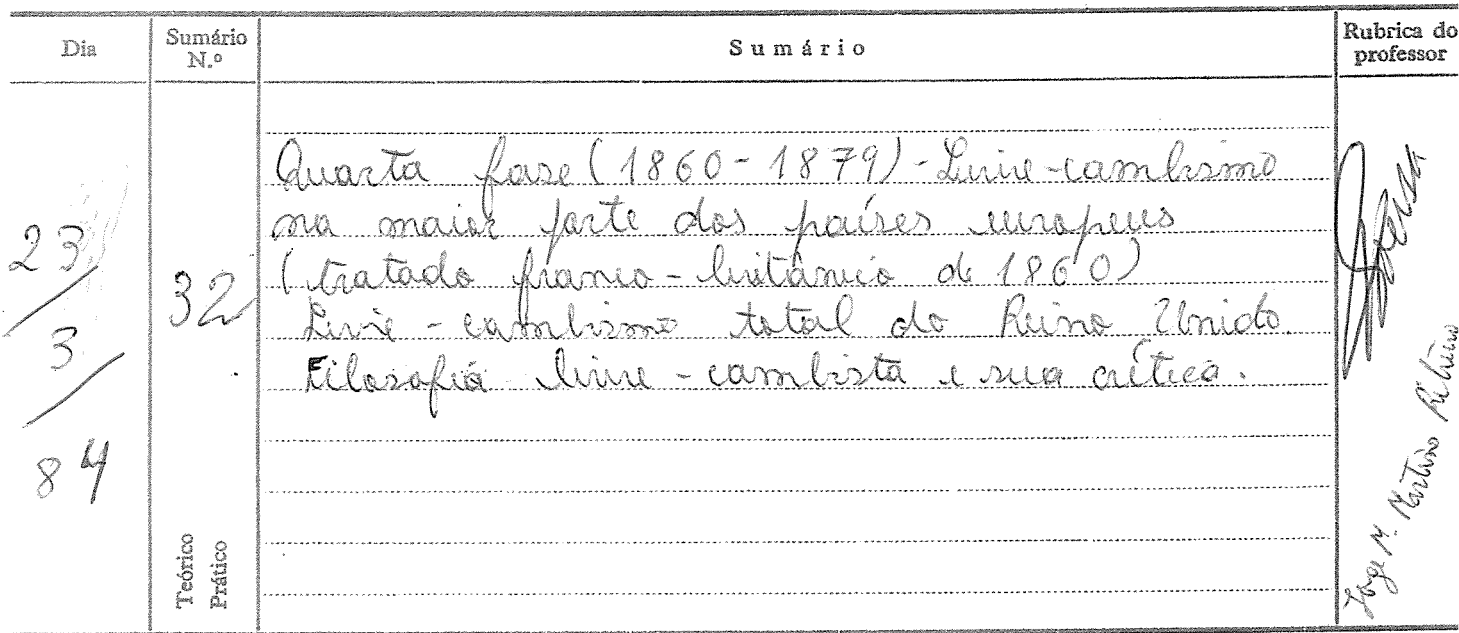 Dia
Sumário N.º
Sumário
Rubrica do professor
23/3/84
32
Quarta fase (1860-1879) - Livre-cambismo
na maior parte dos países europeus
(tratado franco-britânico de 1860)
Livre-cambismo total do Reino Unido.
Filosofia livre-cambista e sua crítica.
Teórico
Prático
Jorge M. Martins Ribeiro